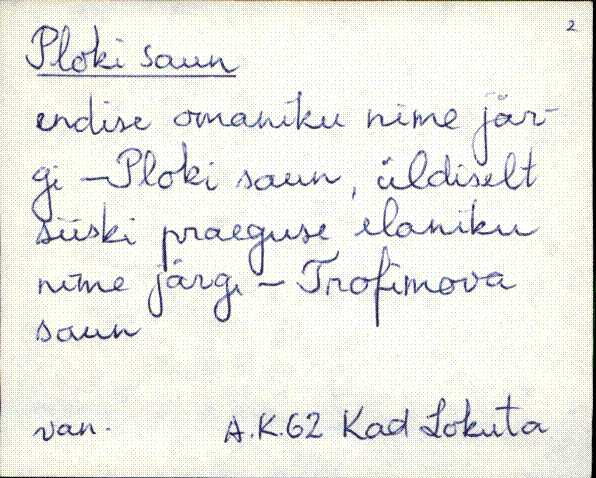 2
Ploki saun
endise omaniku nime jär-
gi – Ploki saun, üldiselt
siiski praeguse elaniku
nime järgi – Trofimova
saun
van. A.K.62 Kad Lokuta